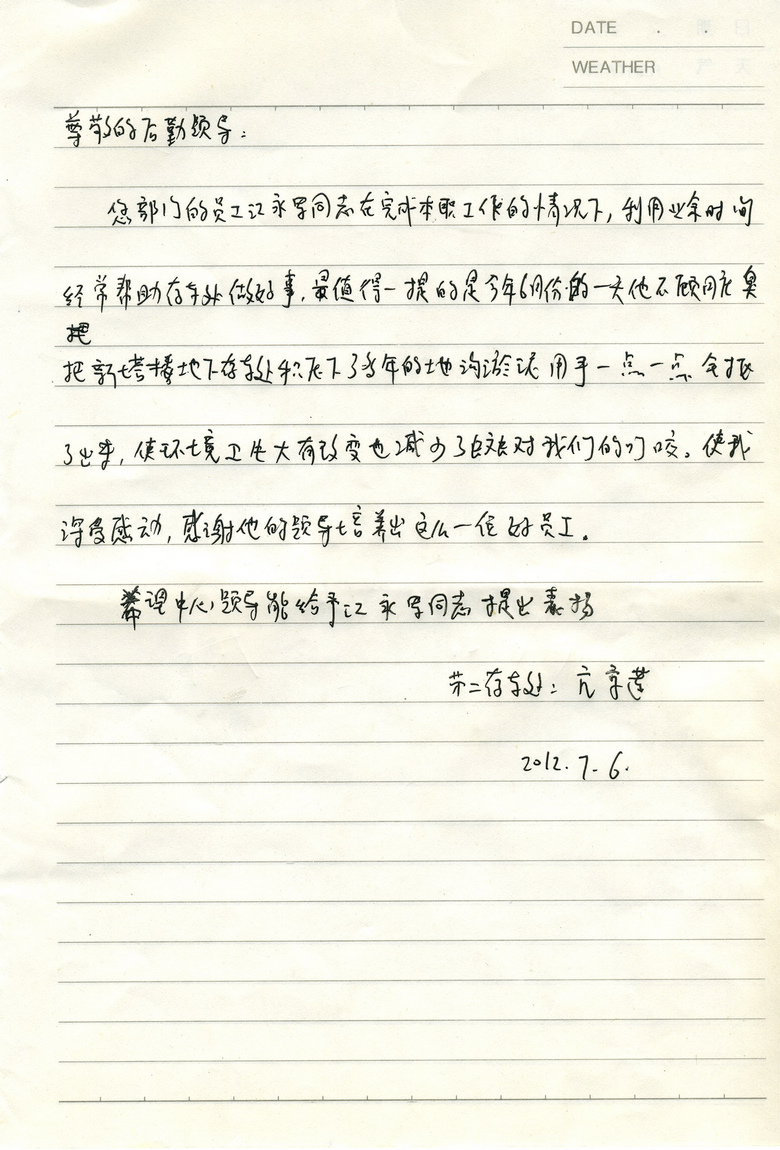 DATE . . 期 日
WEATHER 气 天
尊敬的后勤领导：
您部门的员工江永军同志在完成本职工作的情况下，利用业余时间
经常帮助存车处做好事，最值得一提的是今年6月份的一天他不顾脏臭
把
把新楼地下存车处积压下了多年的地沟淤泥用手一点一点全抠
了出来，使环境卫生大有改变也减少了蚊虫对我们的叮咬。使我
深受感动，感谢他的领导培养出这么一位好员工。
希望中心领导能给予江永军同志提出表扬
第二存车处：亢
2012.7.6.